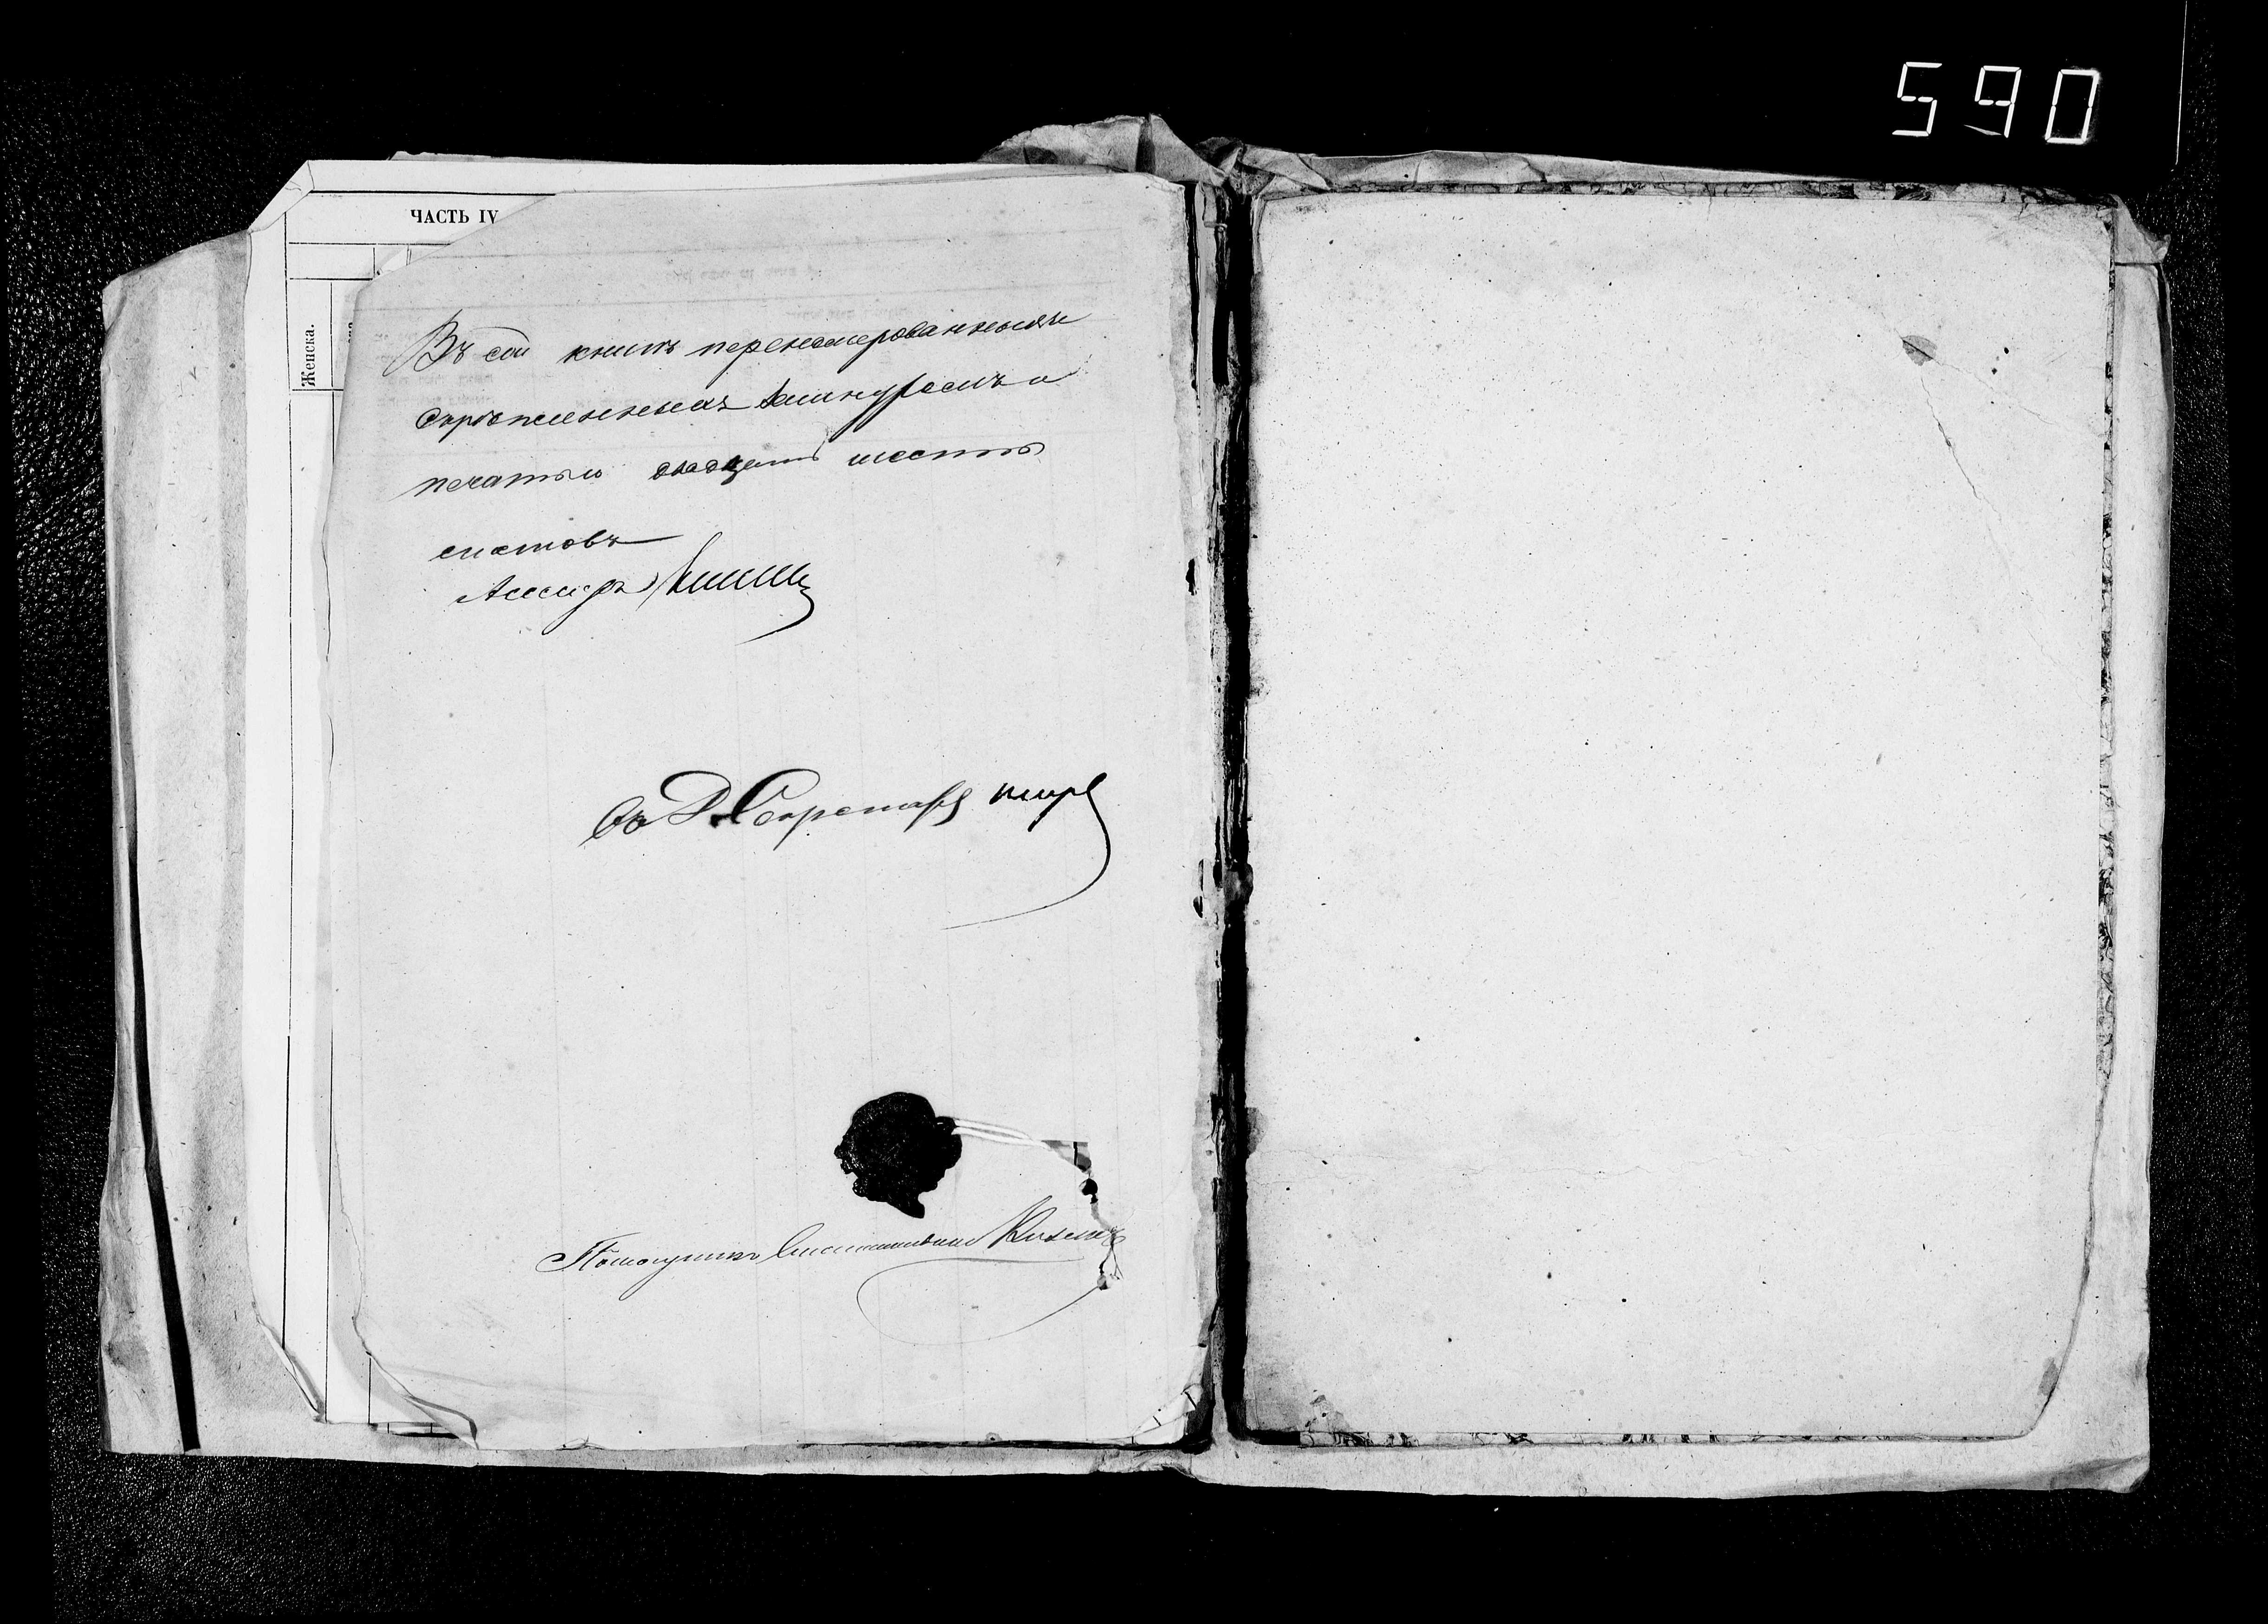 590
ЧАСТЬ IV
Женска.
Въ сей книгѣ перенамерованныхъ
скрѣпленныхъ шнуромъ и
печатью двадцать шесть
листовъ
Секретарь
Помощникъ